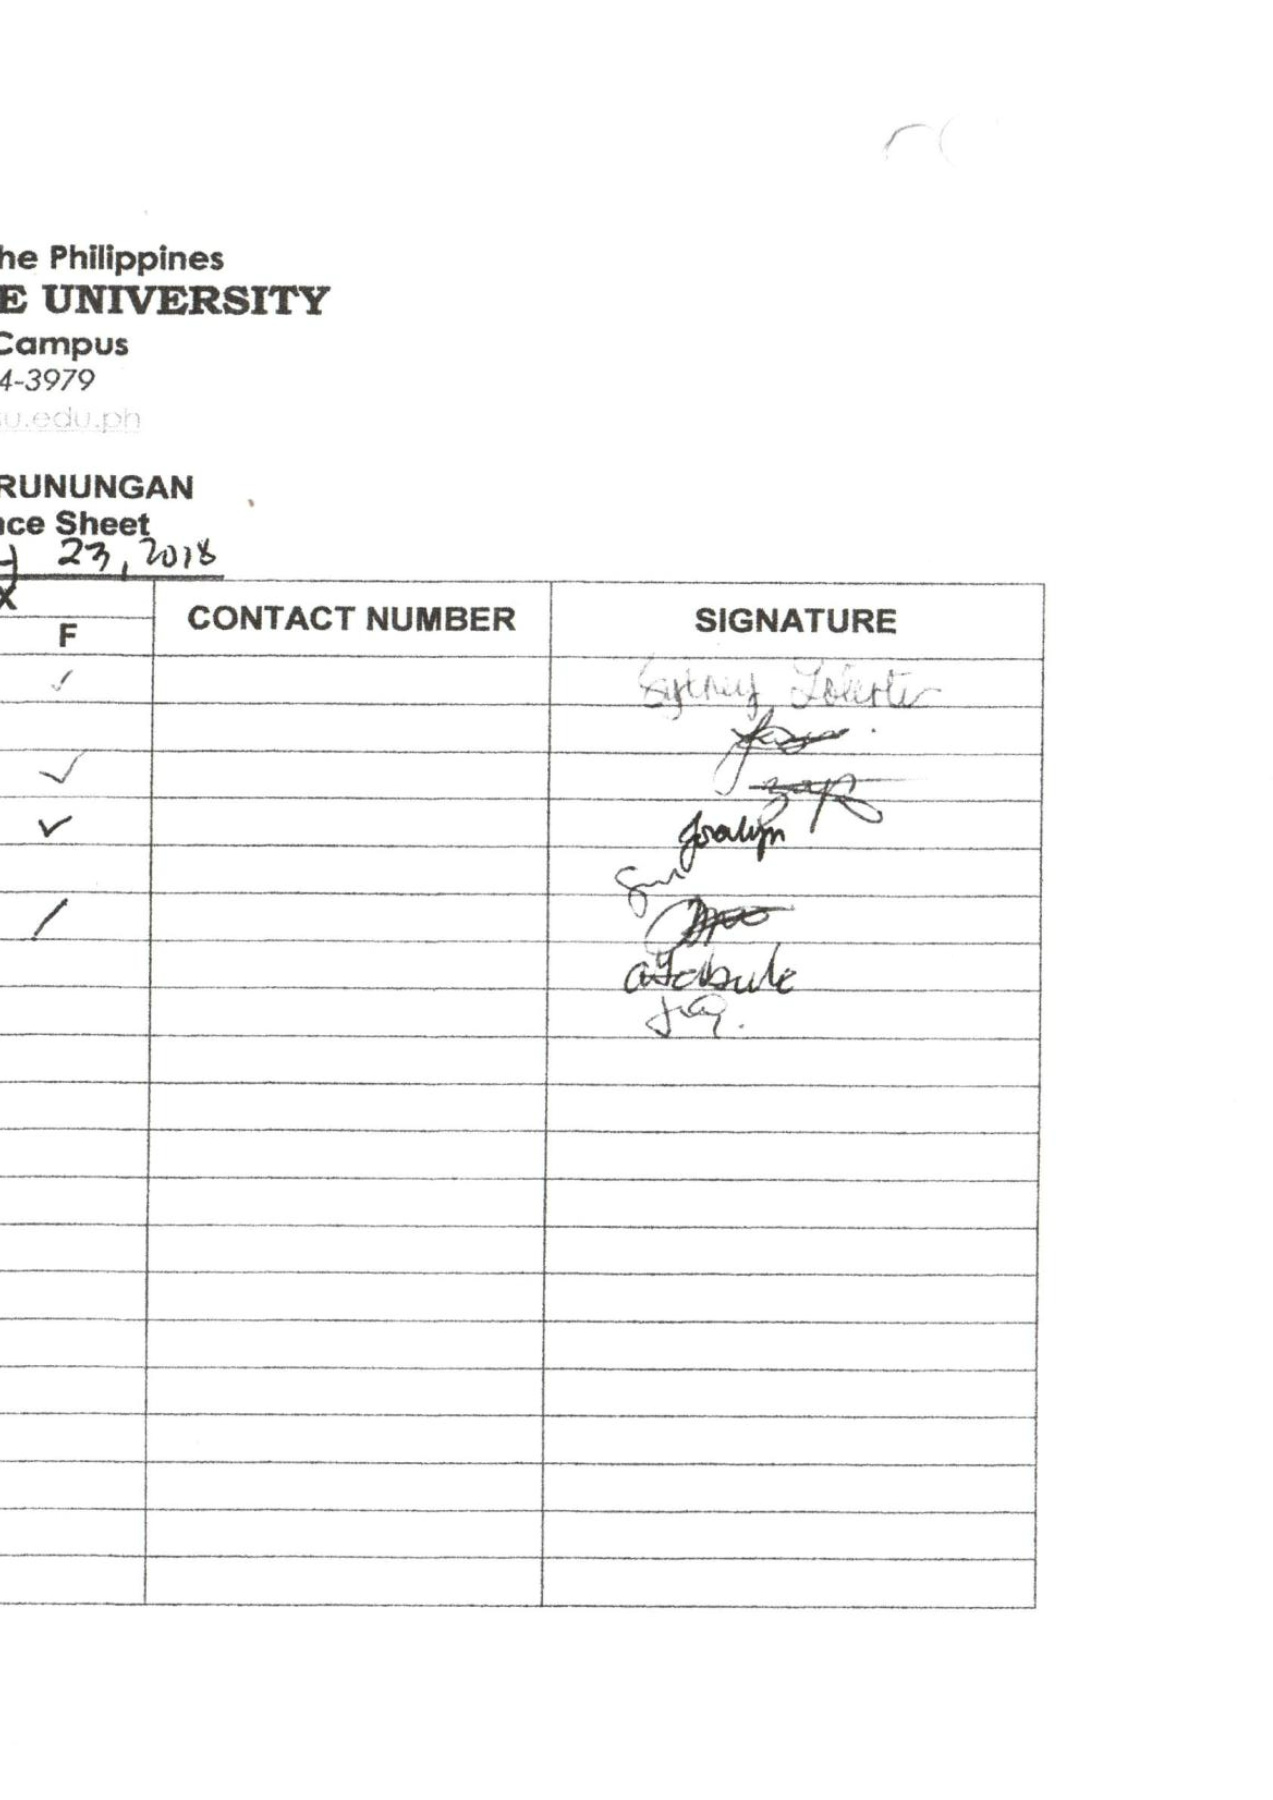 he Philippines
E UNIVERSITY
Campus
4-3979
su.edu.ph
RUNUNGAN
nce Sheet
y 23, 2018
X
F
CONTACT NUMBER
SIGNATURE
✓
Sydney
✓
✓
Joralyn
/